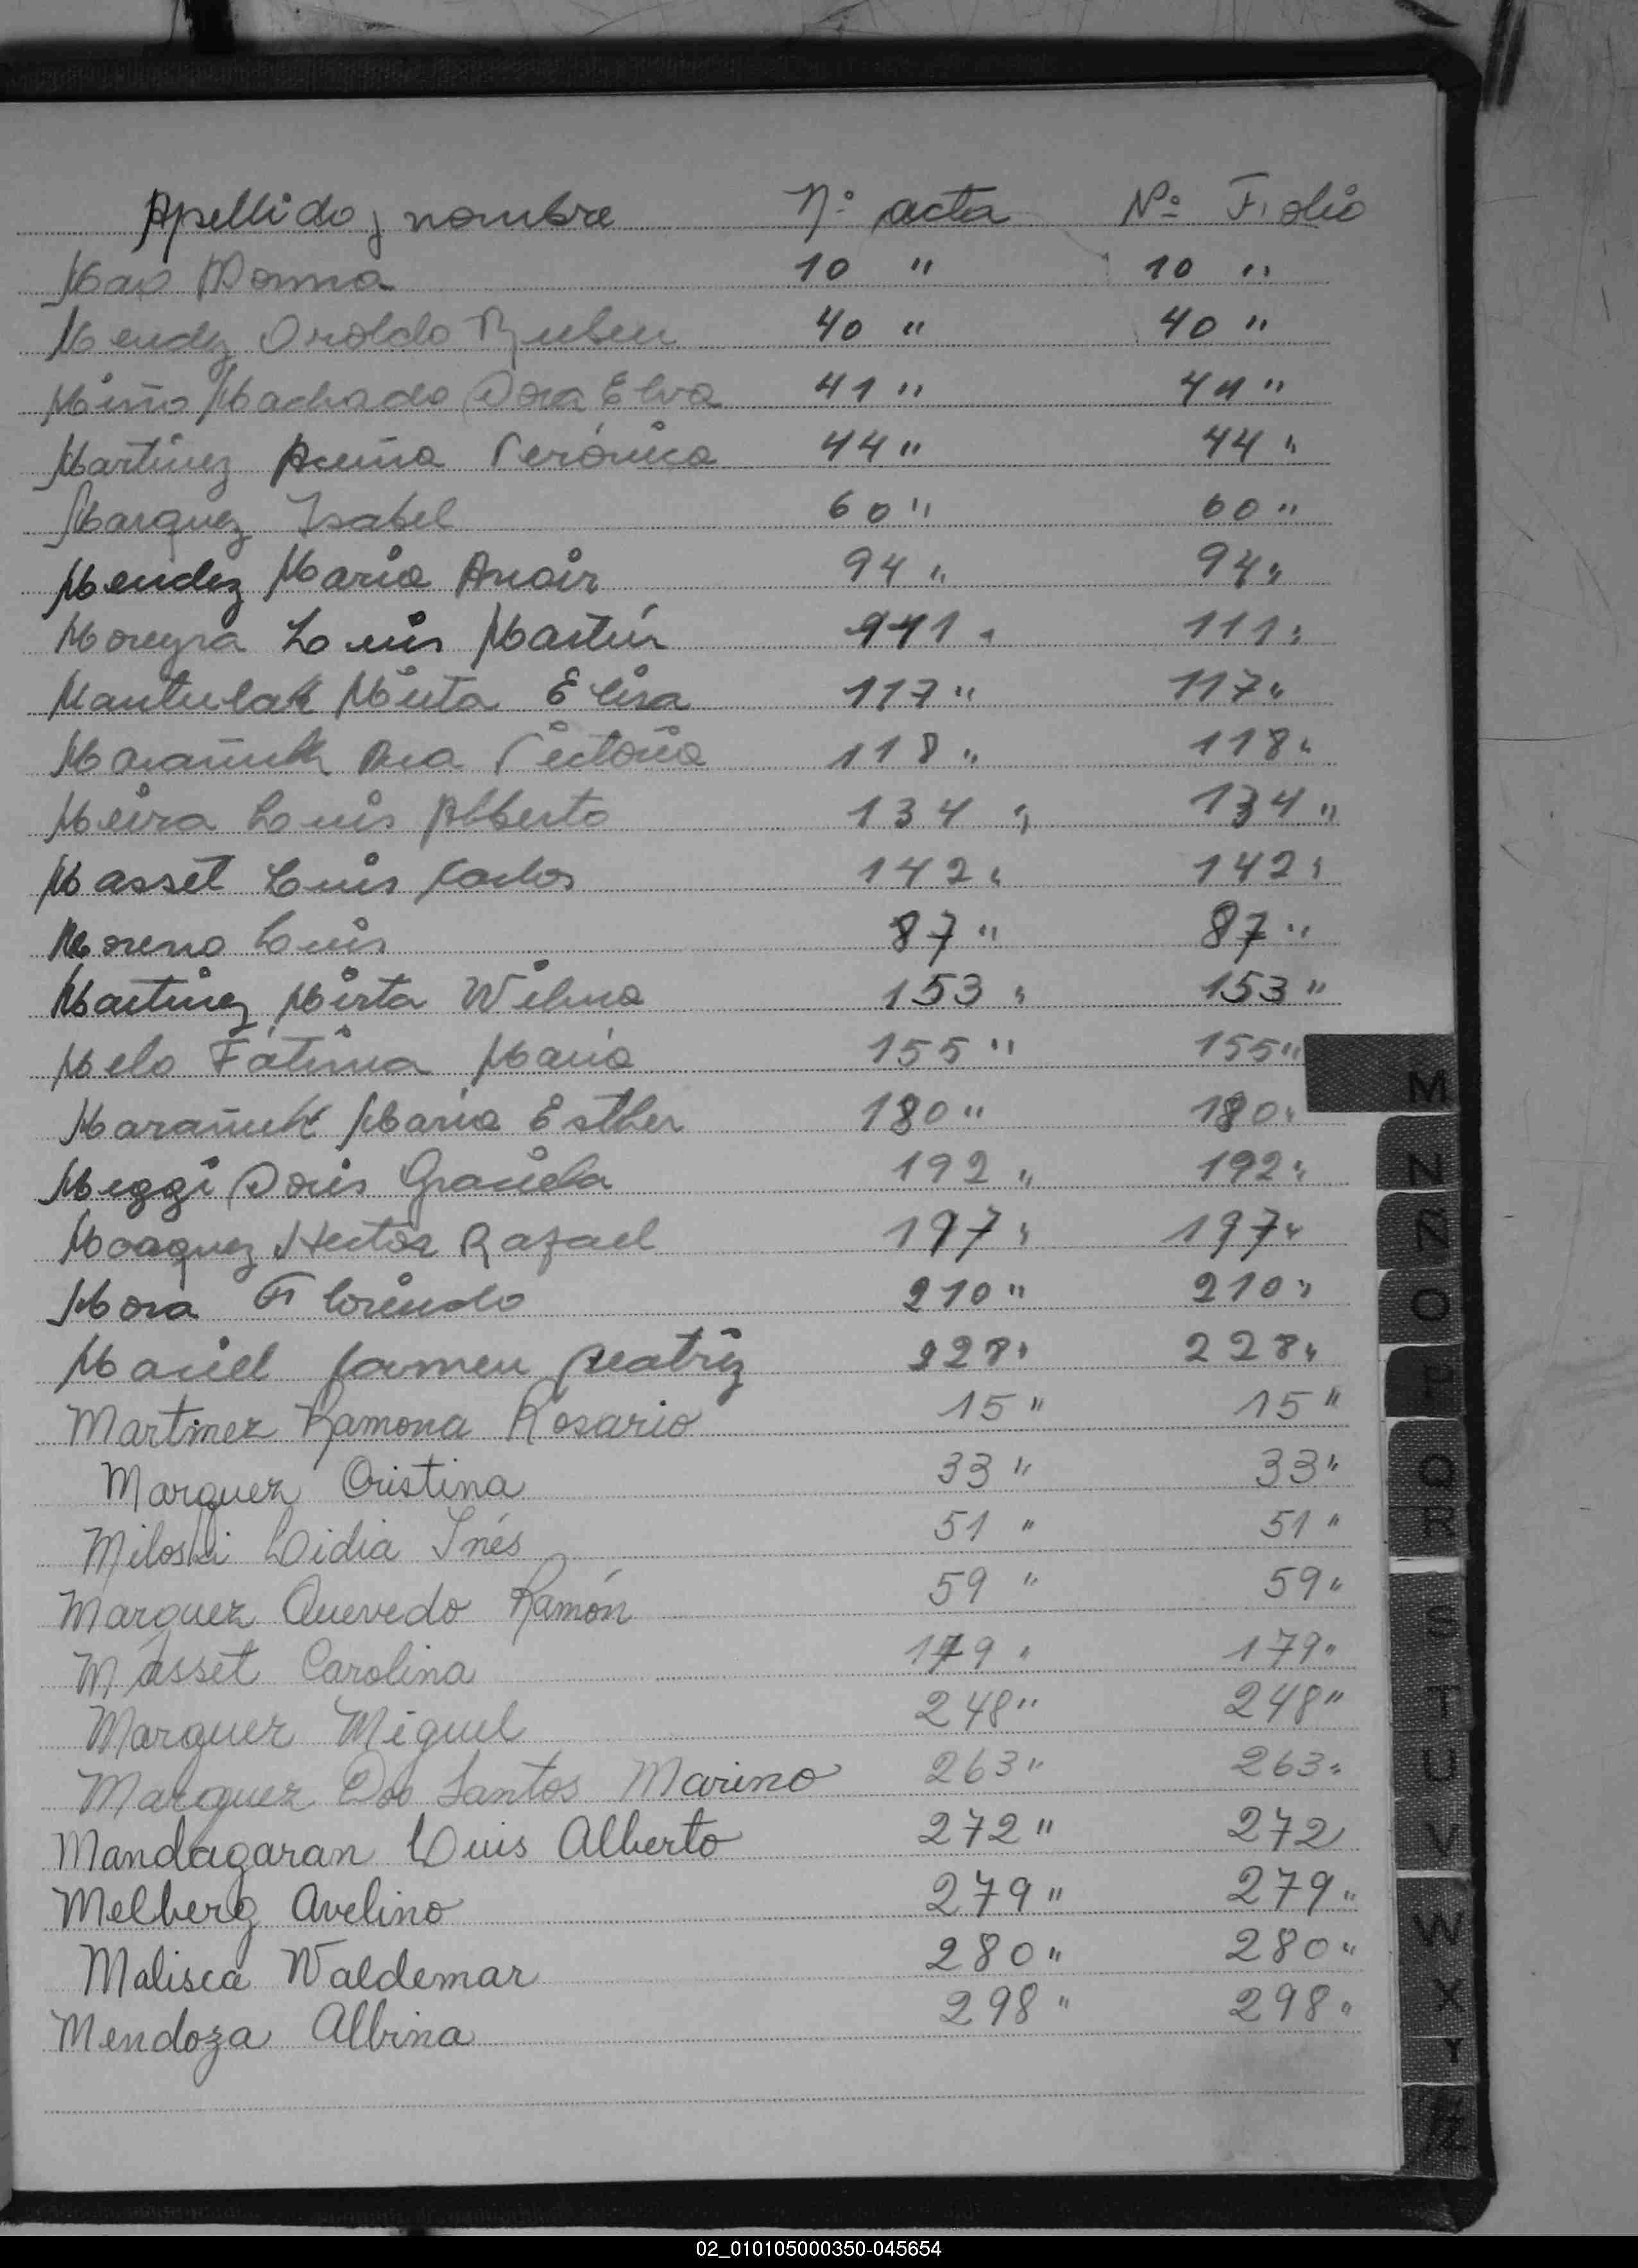 Apellido y nombre Nº acta Nº Folio
10 " 10 "
Mendez Oroldo Ruben 40 " 40 "
Miño Machado Dora Elva 41 " 41 "
Martinez Acuña Verónica 44 " 44 "
Marquez Isabel 60 " 60 "
Mendez Maria Anair 94 " 94 "
Moreyra Luis Martín 111 " 111 "
Mantulak Mirta Elisa 117 " 117 "
Marañuk Ana Victoria 118 " 118 "
Meira Luis Alberto 134 " 134 "
Masset Luis Carlos 142 " 142 "
Moreno Luis 87 " 87 "
Martinez Mirta Wilma 153 " 153 "
Melo Fátima Maria 155 " 155 "
Marañuk Maria Esther 180 " 180 "
Meggi Doris Graciela 192 " 192 "
Marquez Hector Rafael 197 " 197 "
Mora Florindo 210 " 210 "
Maciel Carmen Beatriz 228 " 228 "
Martinez Ramona Rosario 15 " 15 "
Marquez Cristina 33 " 33 "
Miloski Lidia Inés 51 " 51 "
Marquez Quevedo Ramón 59 " 59 "
Masset Carolina 179 " 179 "
Marquez Miguel 248 " 248 "
Marquez Dos Santos Marino 263 " 263 "
Mandagaran Luis Alberto 272 " 272
Melberg Avelino 279 " 279 "
Malisca Waldemar 280 " 280 "
Mendoza Albina 298 " 298 "
M
N
Ñ
O
P
Q
R
S
T
U
V
W
X
Y
Z
02_010105000350-045654